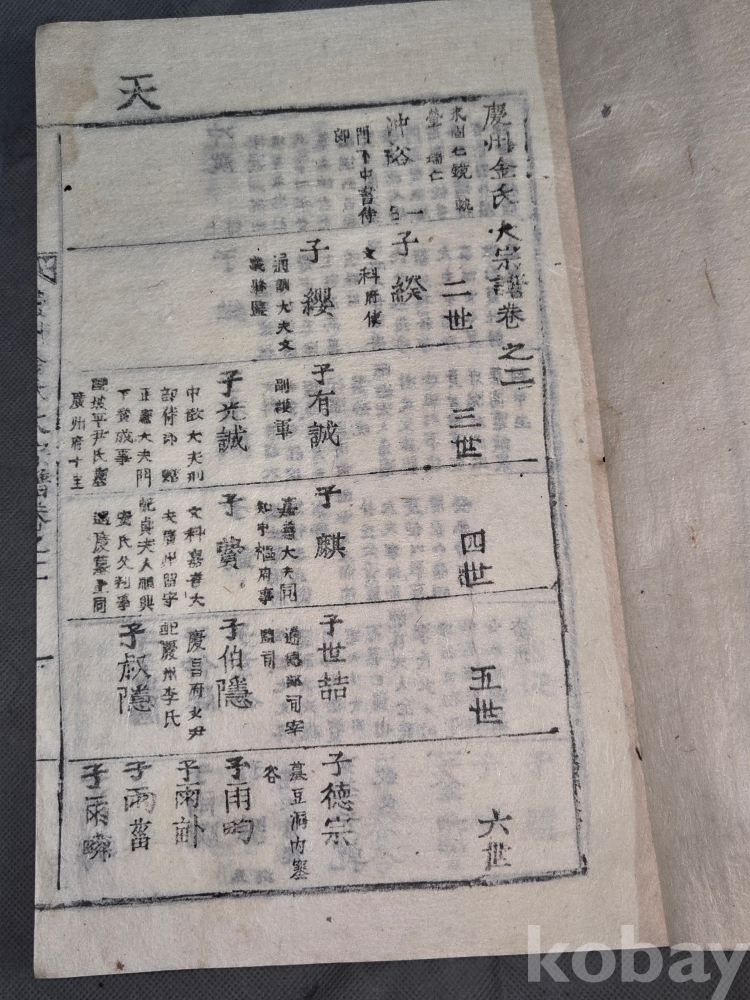 天
慶州金氏大宗譜卷之二
冲裕
門下中書侍
郎
二世
子緌
文科府使
子纓
通訓大夫文
義縣監
三世
子有誠
副護軍
子光誠
中散大夫刑
部侍郎 贈
正憲大夫門
下贊成事
廣州府十里
四世
子麒
嘉善大夫同
知中樞府事
子贇
文科嘉善大
夫廣州留守
配貞夫人順興
安氏父判事
五世
子世喆
通德郎司宰
監司
子伯隱
慶昌府少尹
配慶州李氏
子叔隱
六世
子德宗
墓豆湖內基
谷
子雨畇
子雨訃
子雨畜
子雨疄
kobay